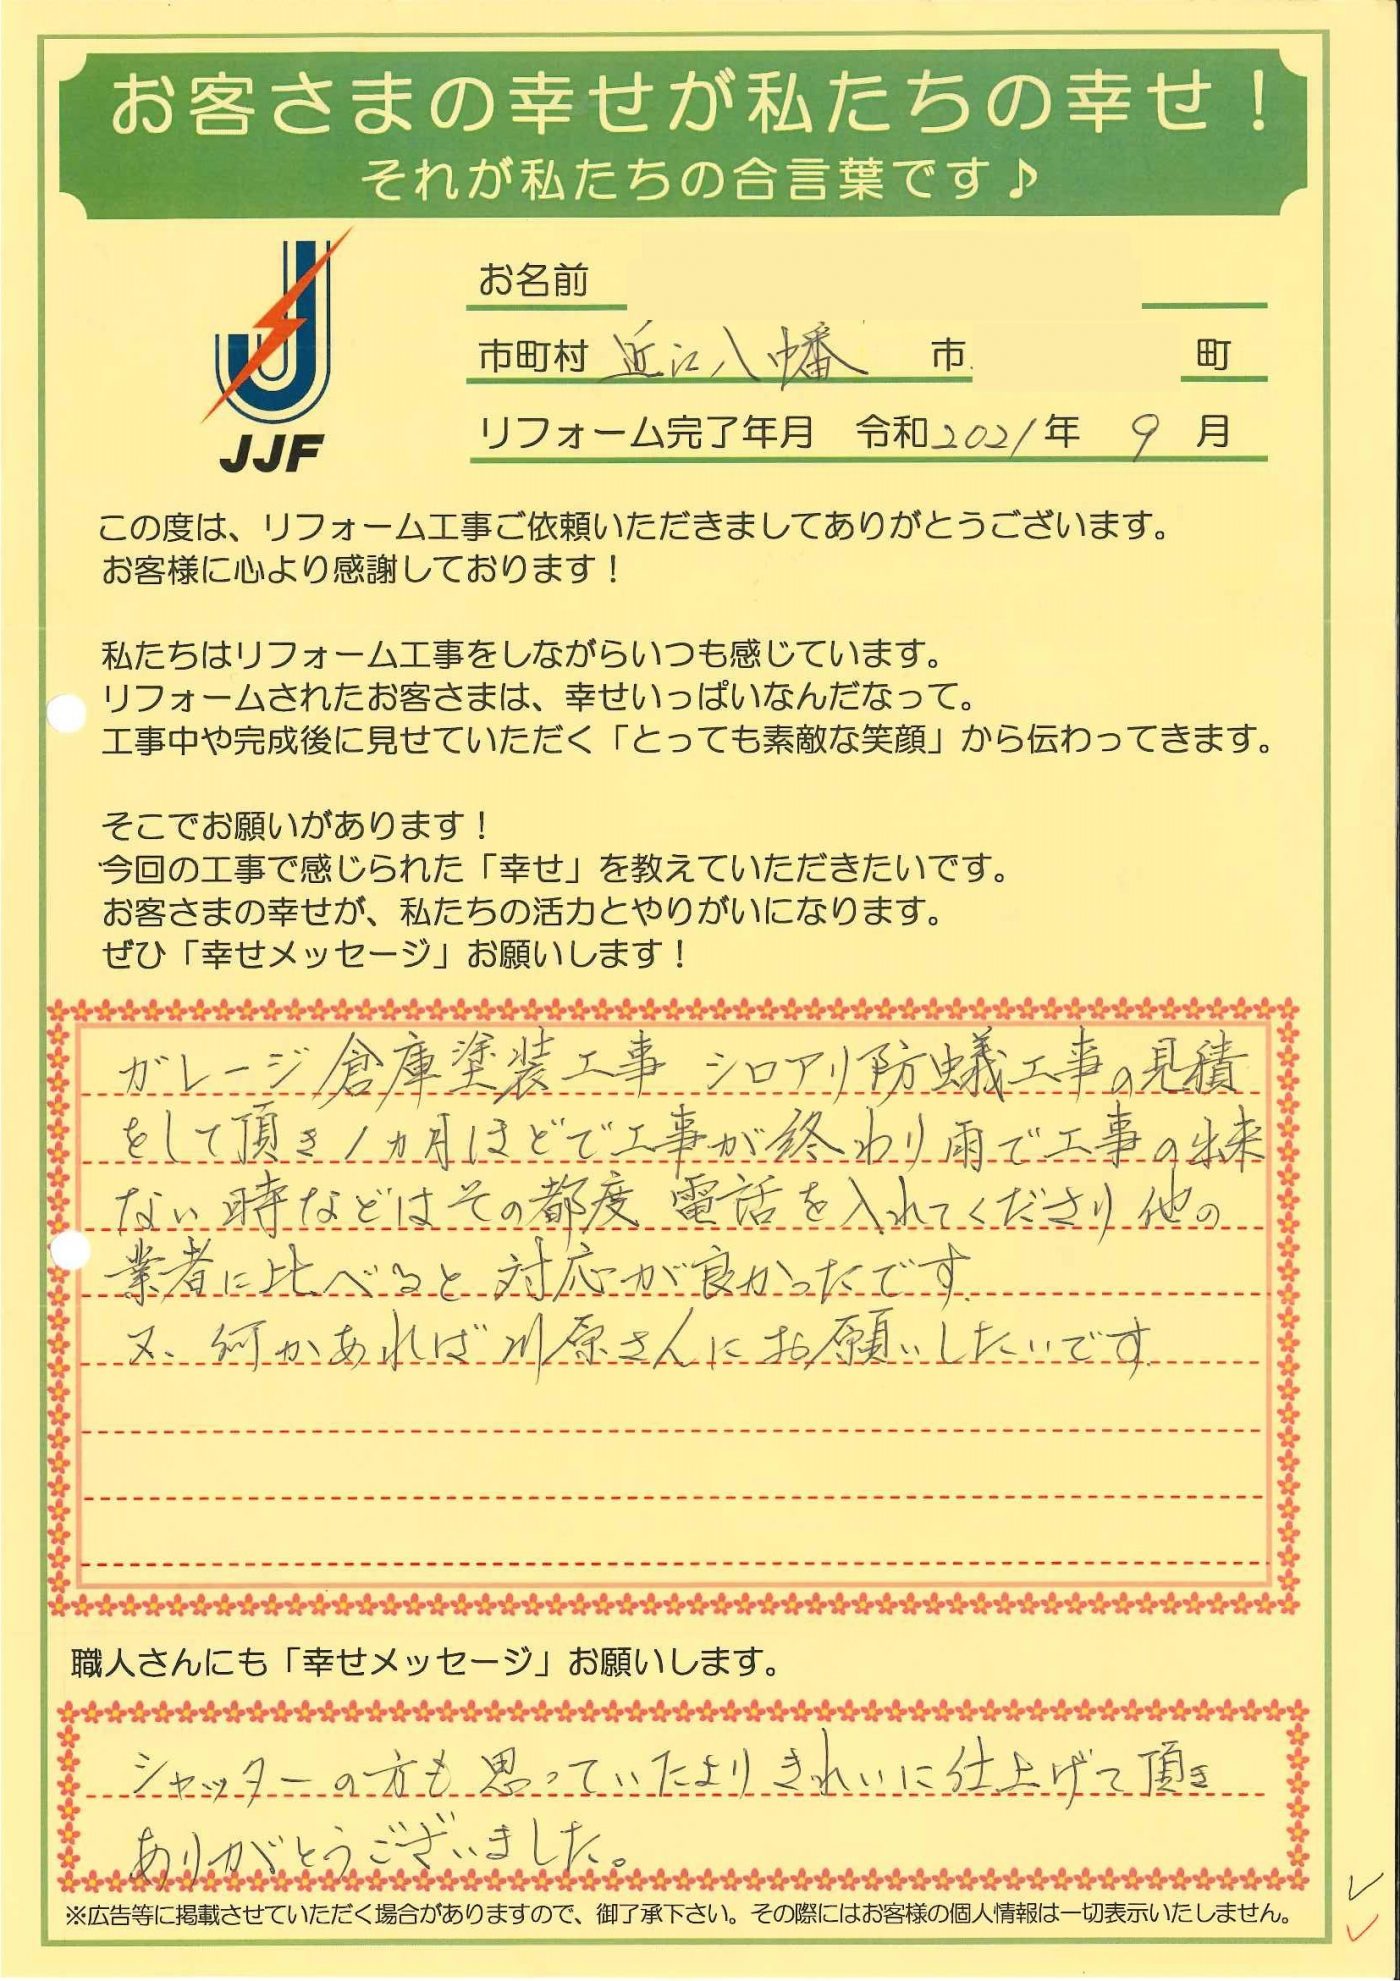 お客さまの幸せが私たちの幸せ！
それが私たちの合言葉です♪
JJF
お名前
市町村 近江八幡 市 町
リフォーム完了年月 令和2021年 9月
この度は、リフォーム工事ご依頼いただきましてありがとうございます。
お客様に心より感謝しております！
私たちはリフォーム工事をしながらいつも感じています。
リフォームされたお客さまは、幸せいっぱいなんだなって。
工事中や完成後に見せていただく「とっても素敵な笑顔」から伝わってきます。
そこでお願いがあります！
今回の工事で感じられた「幸せ」を教えていただきたいです。
お客さまの幸せが、私たちの活力とやりがいになります。
ぜひ「幸せメッセージ」お願いします！
ガレージ倉庫塗装工事 シロアリ防蟻工事の見積
をして頂き1ヵ月ほどで工事が終わり雨で工事の出来
ない時などはその都度 電話を入れてくださり他の
業者に比べると対応が良かったです.
又、何かあれば川原さんにお願いしたいです.
職人さんにも「幸せメッセージ」お願いします。
シャッターの方も思っていたよりきれいに仕上げて頂き
ありがとうございました。
※広告等に掲載させていただく場合がありますので、御了承下さい。その際にはお客様の個人情報は一切表示いたしません。